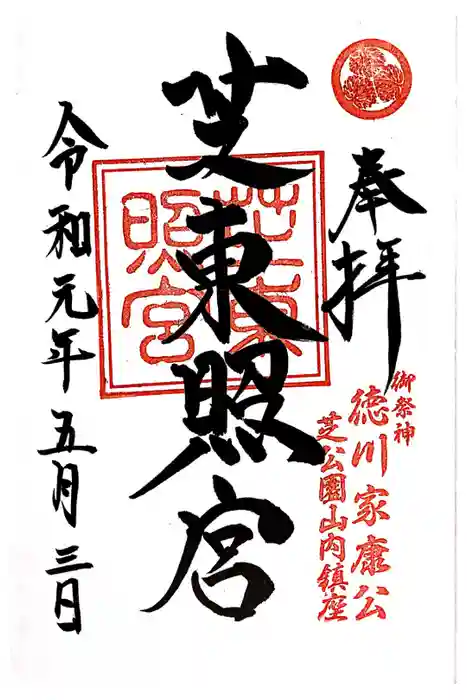 奉拝
御祭神
徳川家康公
芝公園山内鎮座
芝東照宮
芝東
照宮
令和元年五月三日